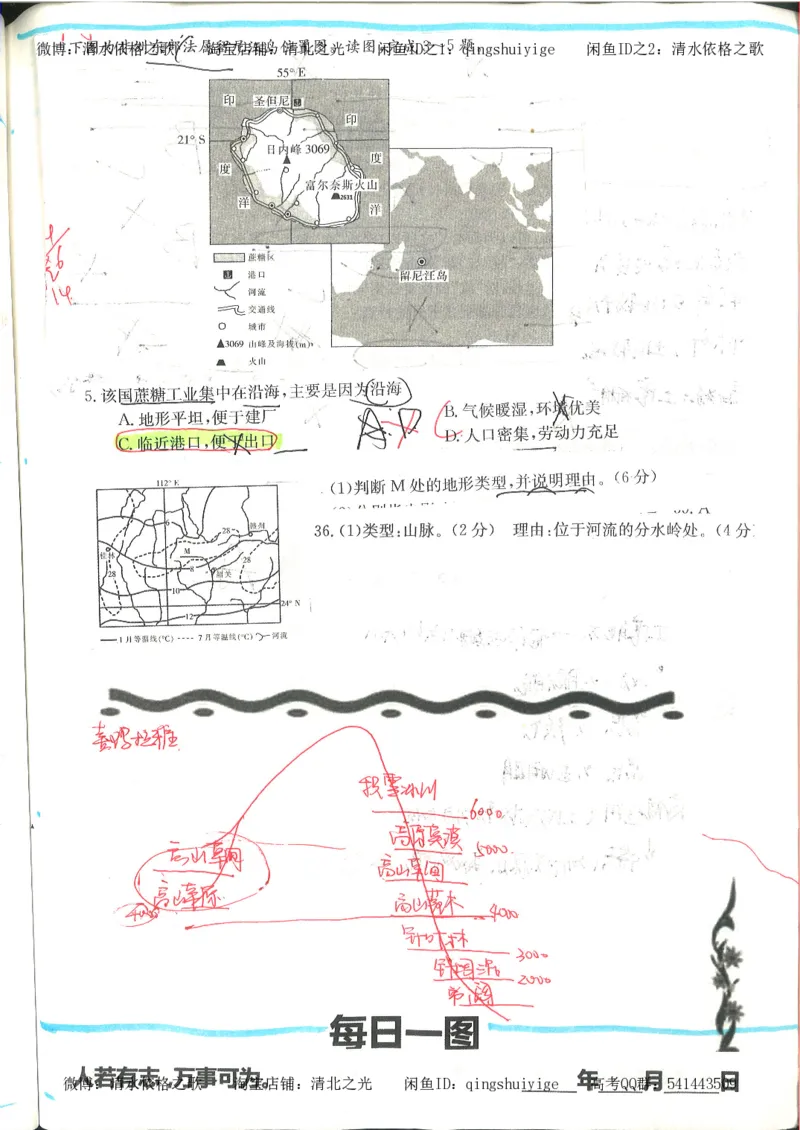 微博：清水依格之歌 淘宝店铺：清北之光 闲鱼ID之1：qingshuiyige 闲鱼ID之2：清水依格之歌
55° E
印 圣但尼
印
21° S
日内峰 3069
度
度
富尔奈斯火山
2631
洋
洋
留尼汪岛
蔗糖区
港口
河流
交通线
城市
3069 山峰及海拔(m)
火山
5.该国蔗糖工业集中在沿海,主要是因为 沿海
A.地形平坦,便于建厂
B.气候暖湿,环境优美
C.临近港口,便于出口
D.人口密集,劳动力充足
(1)判断 M 处的地形类型,并说明理由。(6 分)
36.(1)类型:山脉。(2 分) 理由:位于河流的分水岭处。(4 分
112° E
6
28
赣州
桂林
M
28
8
28
韶关
10
24° N
12
1月等温线(℃) 7月等温线(℃) 河流
喜马拉雅
积雪冰川
6000
高原荒漠
5000
高山草甸
高山草甸
高山灌木
高山草原
4000
4000
针叶林
3000
针阔混
2000
常阔
每日一图
人若有志,万事可为。
年 月 日
微博：清水依格之歌 淘宝店铺：清北之光 闲鱼ID：qingshuiyige 高考QQ群：541443509